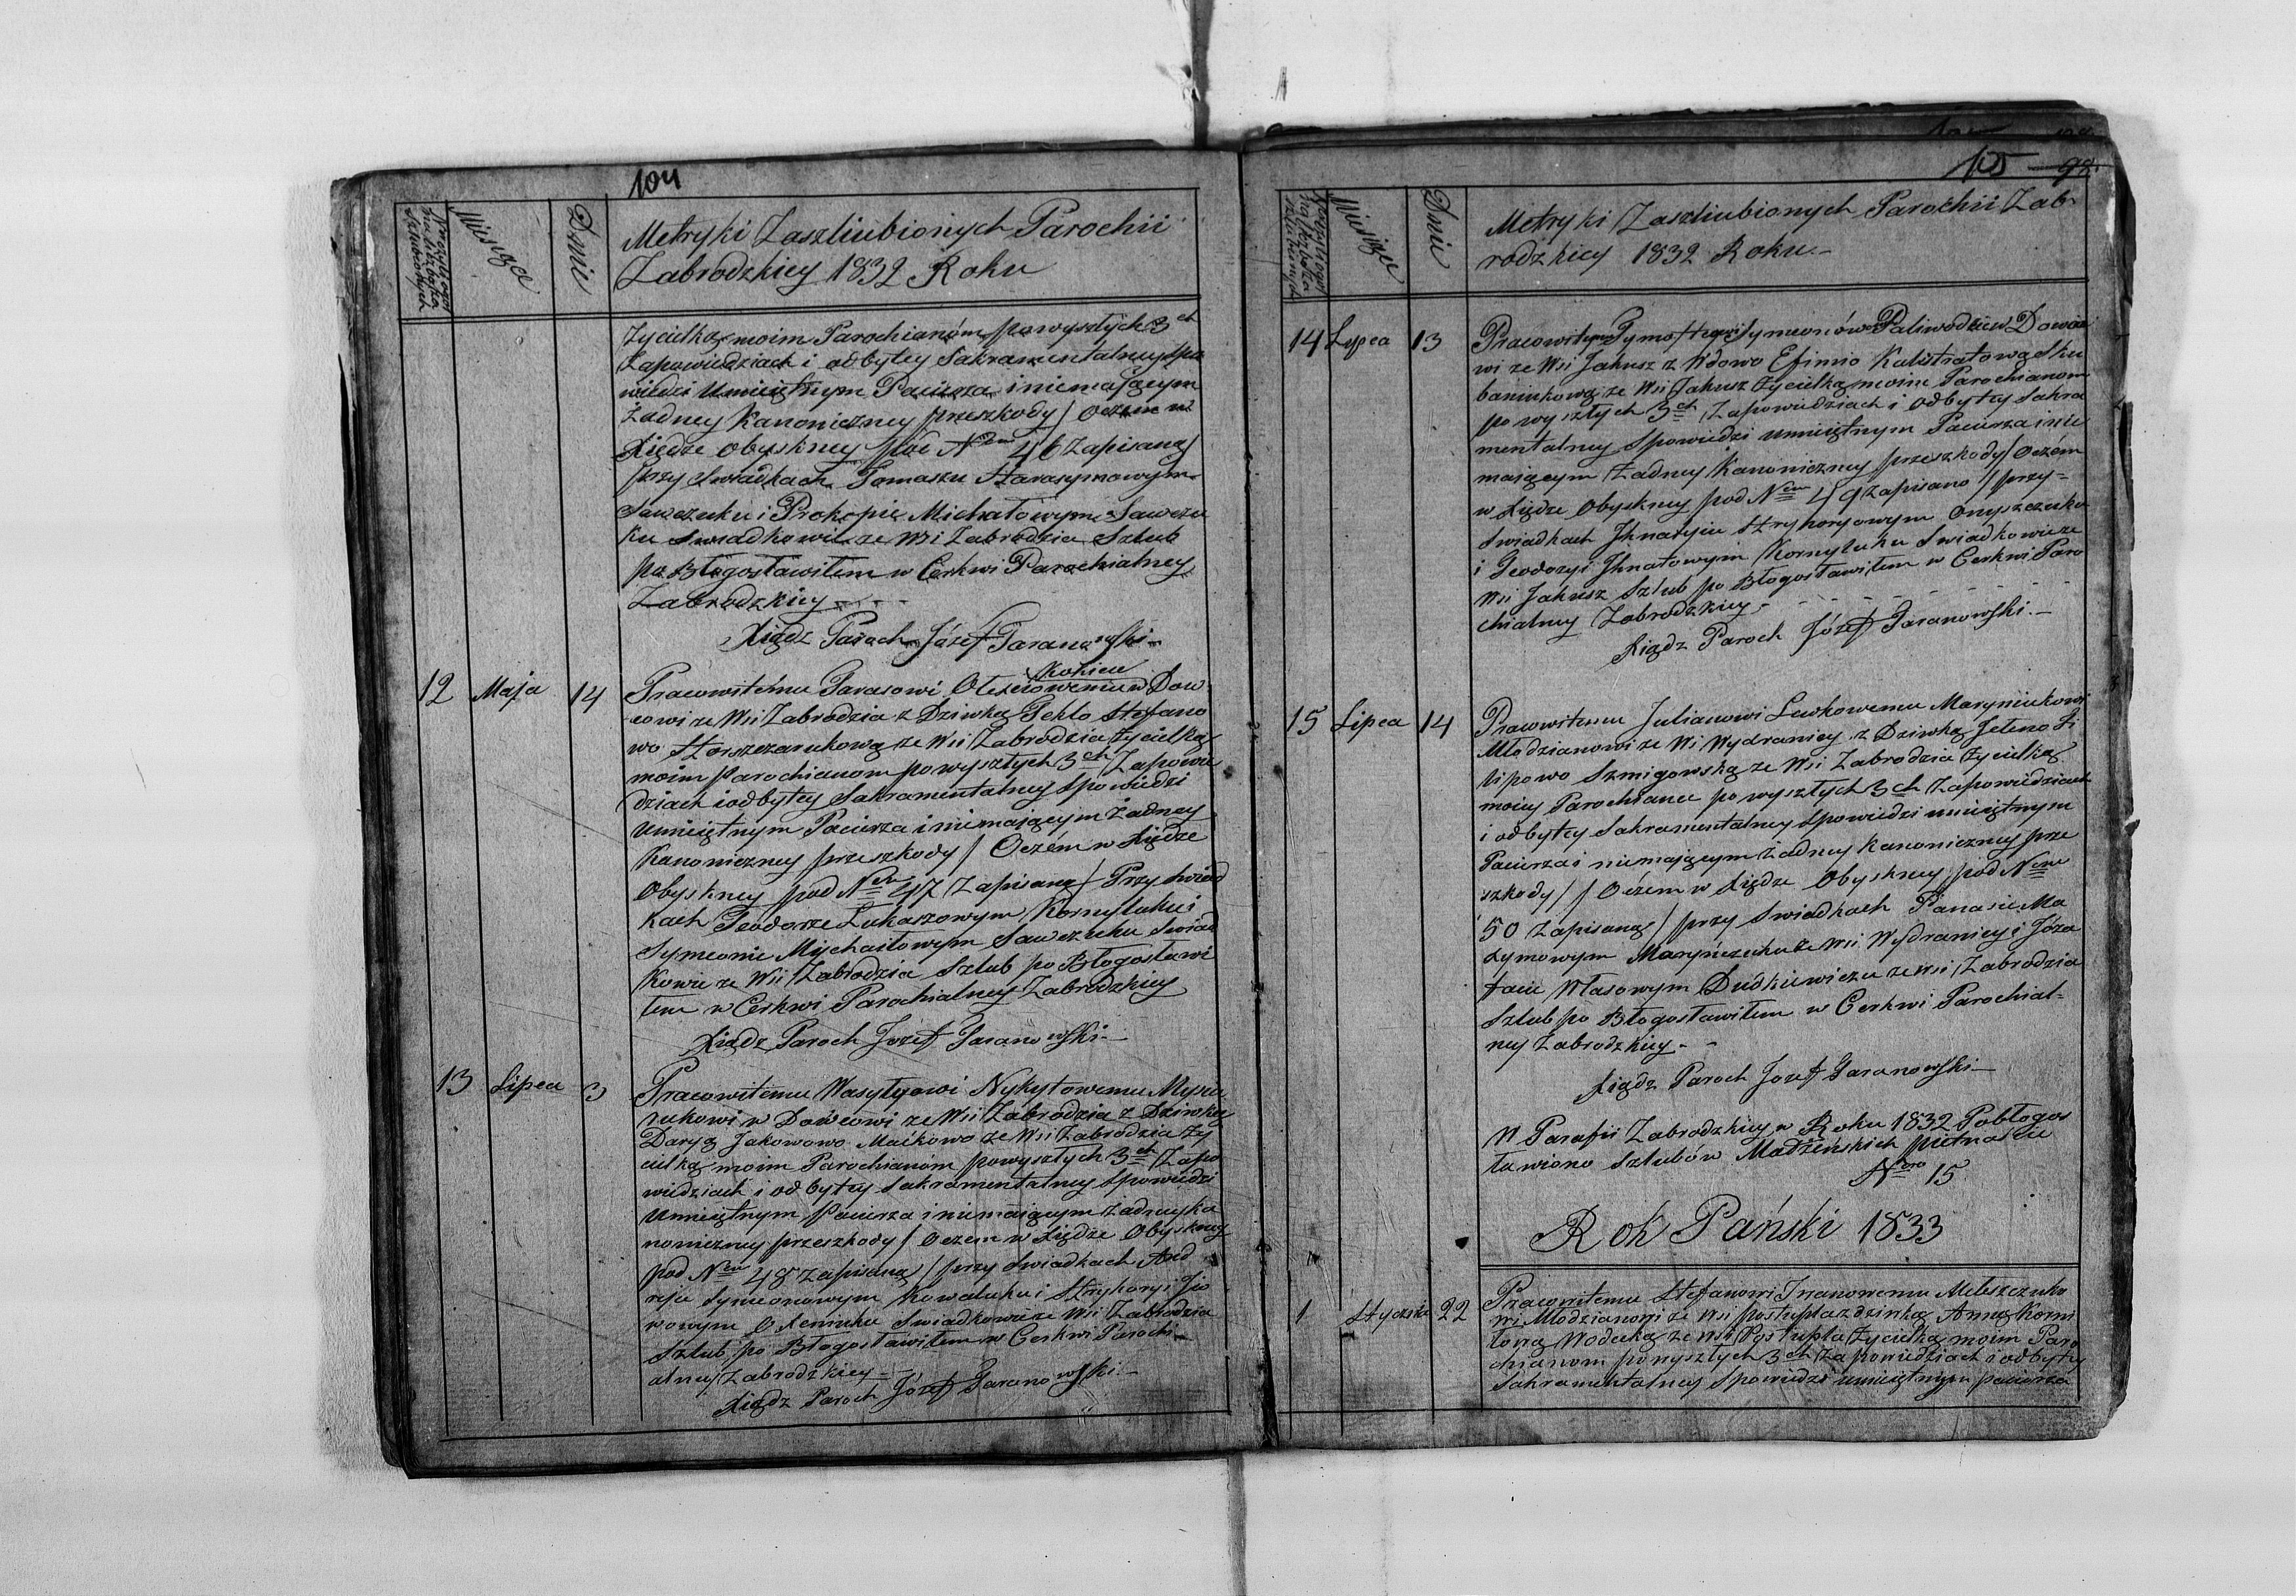 104
Przybłogos
Miesiące
Dnie
Metryki Zaszliubionych Parochii
Zabrodzkiey 1832 Roku
Życielką moim Parochianóm powyszłych 3ch
Zapowiedziach i odbytey Sakramentalney Spo
wiedzi Umieiętnym Pacierza i niemaiącym
Żadney Kanoniczney przeszkody / Oczem w
Xiędze Obyskney pod Nem 46 Zapisano /
przy Swiadkach Tomaszu Harasymowym
Sawczuku i Prokopie Michałowym Sawczu
ku Swiadkowie ze Wsi Zabrodzia Szlub
po Błogosławiłem w Cerkwi Parochialney
Zabrodzkiey
Xiądz Paroch Józef Taranowski
12 Maja 14
Kokieu
Pracowitému Tarasowi Olexiowemu w Dow
cowi ze Wsi Zabrodzia z Dziwką Teklo Stefano
wo ze Wsi Zabrodzia Życielką
moim Parochianom powyszłych 3ch Zapowie
dziach i odbytey Sakramentalney Spowiedzi
Umieiętnym Pacierza i niemaiącym Żadney
Kanoniczney przeszkody / Oczém w Xiędze
Obyskney pod Nem 47 Zapisano / Przy Swiad
kach Teodorze Łukaszowym Kornyluku i
Symeonie Mychaiłowym Sawczuku Swiad
kowie ze Wsi Zabrodzia Szlub po Błogosławi
łem w Cerkwi Parochialney Zabrodzkiey
Xiądz Paroch Jozef Taranowski
13 Lipca 3
Pracowitemu Wasylyowi Nykytowemu
rukowi w Dówcowi ze Wsi Zabrodzia z Dziwką
Daryą Jakowowo Maikowo ze Wsi Zabrodzia Ży
cielką moim Parochianóm powyszłych 3ch Zapo
wiedziach i odbytey Sakramentalney Spowiedzi
Umieiętnym Pacierza i niemaiącym żadney ka
noniczney przeszkody / Oczem w Xiędze Obyskney
pod Nem 48 Zapisano / przy Swiadkach And
reju Symeonowym Kowaluku i Hryhoryi Jo
wowym Swiadkowie ze Wsi Zabrodzia
Szlub po Błogosławiłem w Cerkwi Parochi
alney Zabrodzkiey
Xiądz Paroch Józef Taranowski
105 98
Dnie
Metryki Zaszliubionych Parochii Zab
rodzkiey 1832 Roku
14 Lypca 13
Pracowitemu Symeonów Paliwodzie w Dowco
wi ze Wsi Jahusz z Wdowo Efimio Kalistratową Sku
baninkową ze Wsi Jahusz Życielką moim Parochianom
po wyszłych 3ch Zapowiedziach i odbytey Sakra
mentalney Spowiedzi umieiętnym Pacierza i nie
maiącym Żadney Kanoniczney przeszkody / Oczém
w Xiędze Obyskney pod Nem 49 zapisano / przy
Swiadkach Ihnatyiu Hryhoryowym Onyszczuku
i Teodozyi Ihnatowym Kornyluku Swiadkowie ze
Wsi Jahusz Szlub po Błogosławiłem w Cerkwi Paro
chialney Zabrodzkiey
Xiądz Paroch Józef Taranowski
15 Lipca 14
Pracowitemu Julianowi Lewkowemu Maryniukowi
Młodzianowi ze Wsi Wydranicy z Dziwką Jeleno Fi
lipowo Szmigowską ze Wsi Zabrodzia Życielką
moiey Parochiance po wyszłych 3ch Zapowiedziach
i odbytey Sakramentalney Spowiedzi umieiętnym
Pacierza i niemaiącym żadney kanoniczney prze
szkody / Oczem w Xiędze Obyskney pod Nem
50 Zapisano / przy Swiadkach Panasie Ma
xymowym Maryńczuku ze Wsi Wydranicy i Józa
facie Własowym Dudkiewiczu ze Wsi Zabrodzia
Szlub po Błogosławiłem w Cerkwi Parochial
ney Zabrodzkiey
Xiądz Paroch Jozef Taranowski
W Parafii Zabrodzkiey w Roku 1832 Pobłogos
ławiono Szlubów Madżeńskich pietnascie
Nro 15
Rok Pański 1833
1 Stycznia 22
Pracowitemu Stefanowi Iwanowemu Meleszczuko
wi Młodzianowi ze Wsi Postupla z dziwką Anną Korni
łową Wodecką ze Wsi Postupla Życielką moim Paro
chianom powyszłych 3ch Zapowiedziach i odbytey
Sakramentalney Spowiedzi umieiętnym pacierza